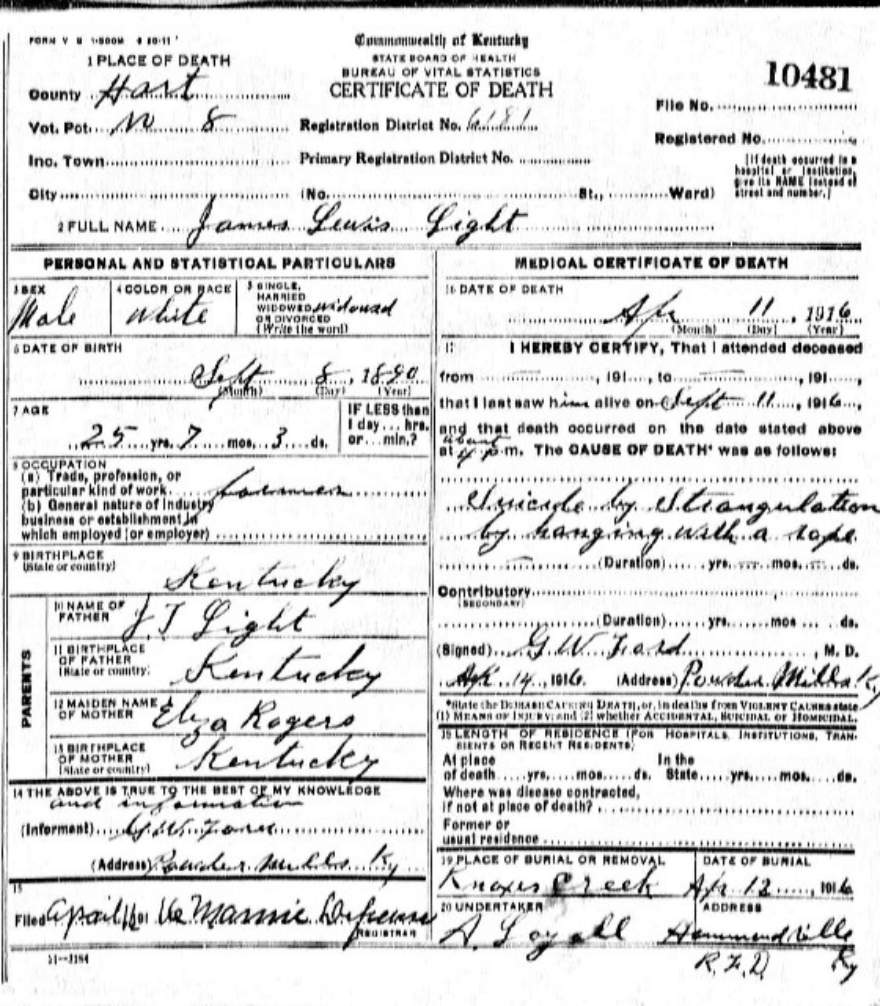 FORM V S 1-500M 4 20-11
Commonwealth of Kentucky
STATE BOARD OF HEALTH
BUREAU OF VITAL STATISTICS
CERTIFICATE OF DEATH
10481
1 PLACE OF DEATH
County Hart
Vot. Pct. No 8
Inc. Town
City
Registration District No. 6181
Primary Registration District No.
(No. St., Ward)
File No.
Registered No.
[If death occurred in a
hospital or institution,
give its NAME instead of
street and number.]
2 FULL NAME James Lewis Light
PERSONAL AND STATISTICAL PARTICULARS
3 SEX
Male
4 COLOR OR RACE
White
5 SINGLE,
MARRIED
WIDOWED widowed
OR DIVORCED
(Write the word)
6 DATE OF BIRTH
Sept 8, 1890
(Month) (Day) (Year)
7 AGE
25 yrs. 7 mos. 3 ds.
IF LESS than
1 day... hrs.
or... min.?
8 OCCUPATION
(a) Trade, profession, or
particular kind of work farmer
(b) General nature of industry
business or establishment in
which employed (or employer)
9 BIRTHPLACE
(State or country)
Kentucky
PARENTS
10 NAME OF
FATHER
J T Light
11 BIRTHPLACE
OF FATHER
(State or country)
Kentucky
12 MAIDEN NAME
OF MOTHER
Eliza Rogers
13 BIRTHPLACE
OF MOTHER
(State or country)
Kentucky
14 THE ABOVE IS TRUE TO THE BEST OF MY KNOWLEDGE
and information
(Informant) G.W. Ford
(Address) Powder Mills Ky
15
Filed April 16 Mannie
REGISTRAR
11-3184
MEDICAL CERTIFICATE OF DEATH
16 DATE OF DEATH
Apr 11, 1916
(Month) (Day) (Year)
17 I HEREBY CERTIFY, That I attended deceased
from, 191, to, 191,
that I last saw him alive on Sept 11, 1916,
and that death occurred on the date stated above
about
at 4 p.m. The CAUSE OF DEATH* was as follows:
Suicide by Strangulation
by hanging with a rope
(Duration) yrs. mos. ds.
Contributory
(SECONDARY)
(Duration) yrs. mos ds.
(Signed) G.W. Ford, M. D.
Apr 14, 1916 (Address) Powder Mills Ky
*State the DISEASE CAUSING DEATH, or, in deaths from VIOLENT CAUSES state
(1) MEANS OF INJURY; and (2) whether ACCIDENTAL, SUICIDAL or HOMICIDAL.
18 LENGTH OF RESIDENCE (FOR HOSPITALS, INSTITUTIONS, TRAN-
SIENTS OR RECENT RESIDENTS)
At place In the
of death yrs. mos. ds. State yrs. mos. ds.
Where was disease contracted,
if not at place of death?
Former or
usual residence
19 PLACE OF BURIAL OR REMOVAL
Knoxes Creek
DATE OF BURIAL
Apr 12, 1916
20 UNDERTAKER
A. Loyall
ADDRESS
Hammondville
R.F.D. Ky